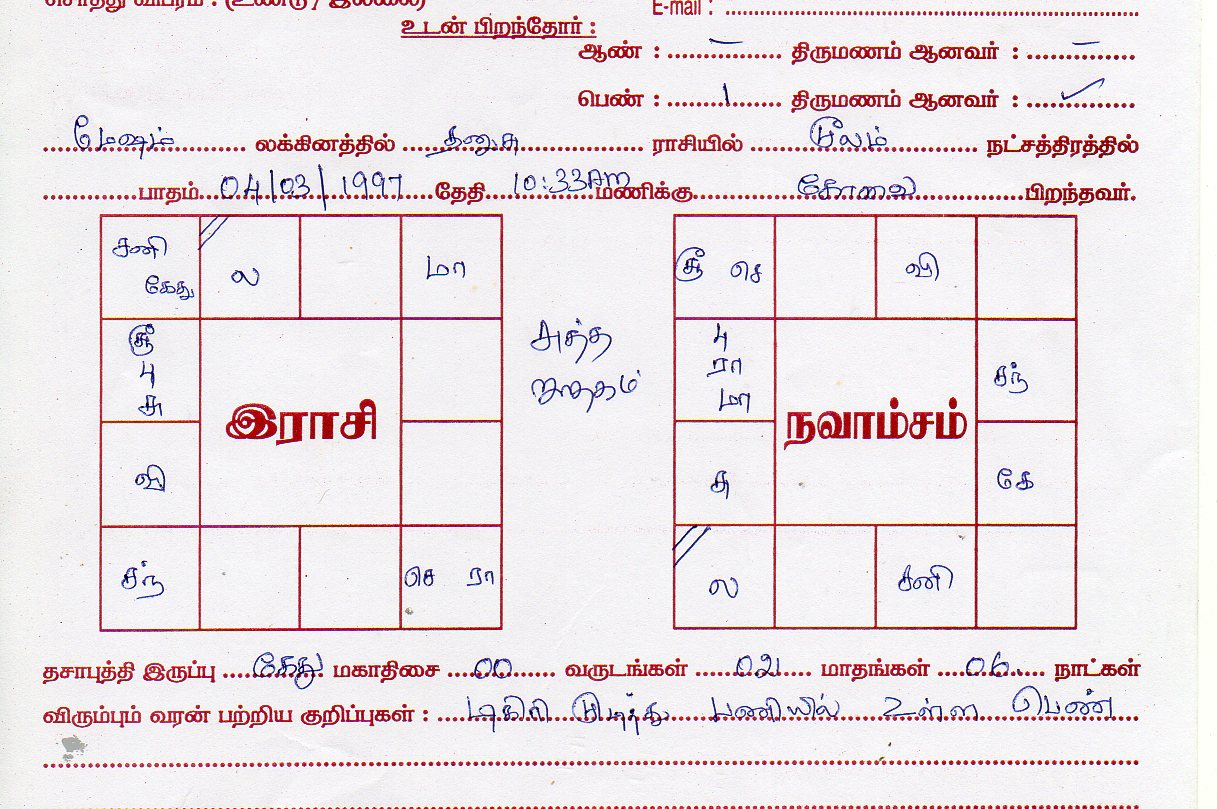 சொத்து விபரம் : (உண்டு / இல்லை) E-mail : ........
உடன் பிறந்தோர் :
ஆண் : ....–.... திருமணம் ஆனவர் : ....–....
பெண் : ....1.... திருமணம் ஆனவர் : ....✓....
மேஷம் லக்கினத்தில் தனுசு ராசியில் மூலம் நட்சத்திரத்தில்
........பாதம் 04/03/1997 தேதி 10:33AM மணிக்கு கோவை பிறந்தவர்.
சனி கேது ல மா
சூ பு சு
இராசி
வி
சந் செ ரா
சுத்த ஜாதகம்
சூ செ வி
பு ரா மா சந்
நவாம்சம்
சு கே
ல சனி
தசாபுத்தி இருப்பு கேது மகாதிசை 00 வருடங்கள் 02 மாதங்கள் 06 நாட்கள்
விரும்பும் வரன் பற்றிய குறிப்புகள் : டிகிரி முடித்து பணியில் உள்ள பெண்